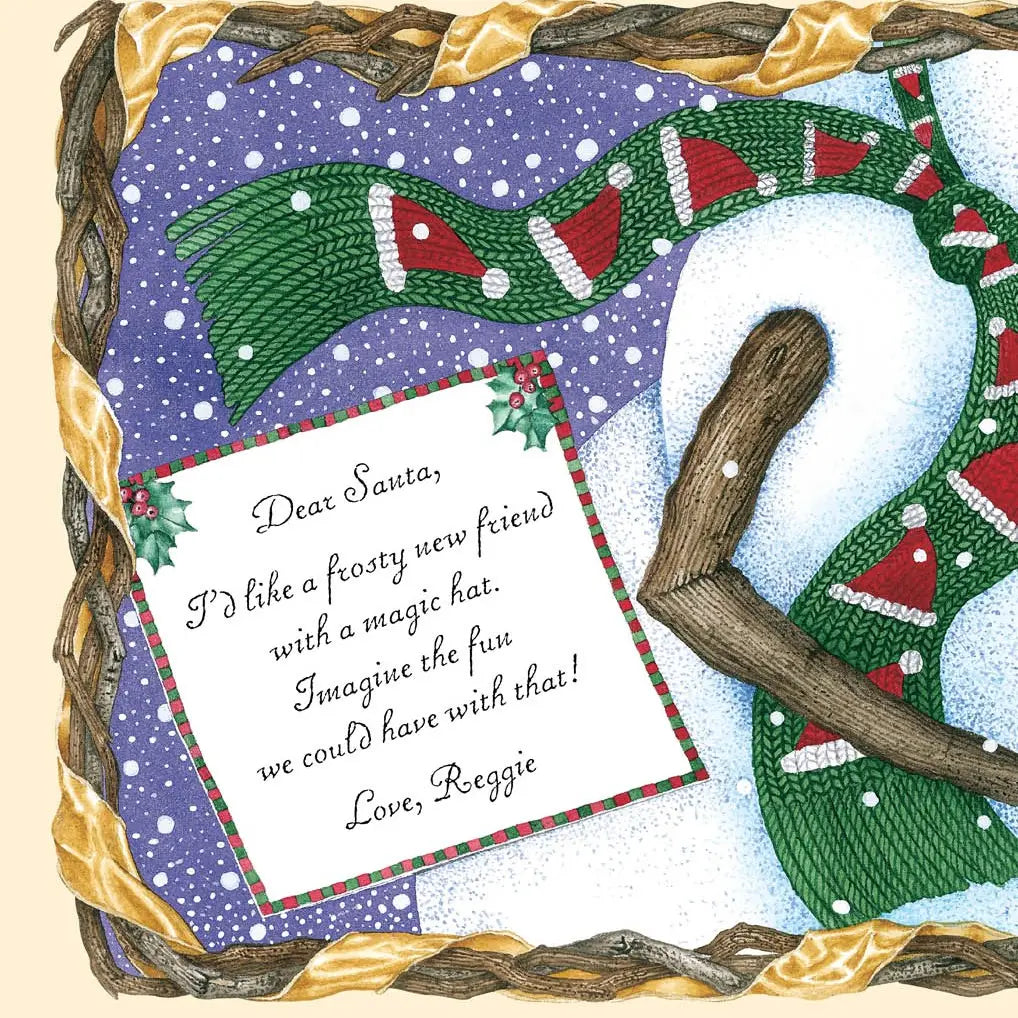 Dear Santa,
I'd like a frosty new friend
with a magic hat.
Imagine the fun
we could have with that!
Love, Reggie